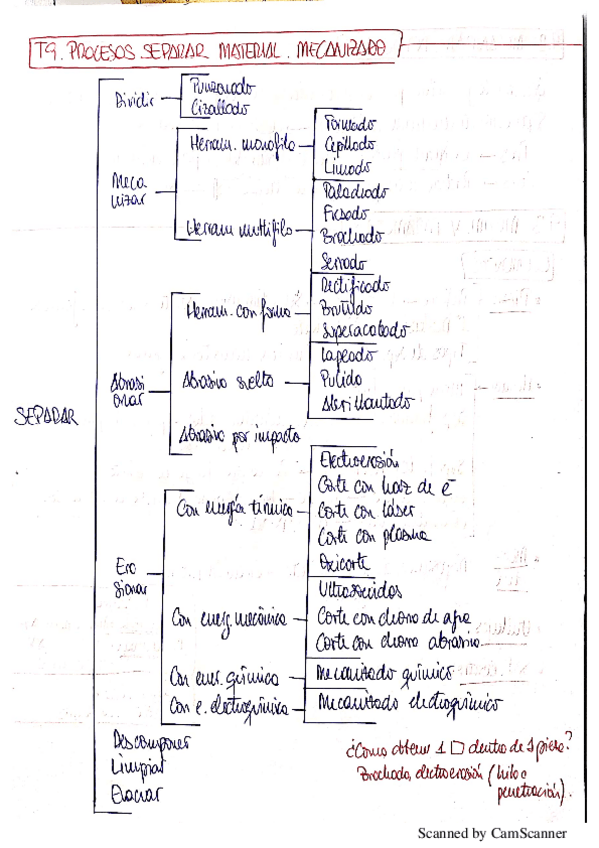 T9. PROCESOS SEPARAR MATERIAL. MECANIZADO
SEPARAR
Dividir
Punzonado
Cizallado
Meca
nizar
Herram. monofilo
Torneado
Cepillado
Limado
Herram multifilo
Taladrado
Fresado
Brochado
Serrado
Abrasi
onar
Herram. con forma
Rectificado
Bruñido
Superacabado
Abrasivo suelto
Lapeado
Pulido
Abrillantado
Abrasivo por impacto
Ero
sionar
Con energía térmica
Electroerosión
Corte con haz de e-
Corte con láser
Corte con plasma
Oxicorte
Con energ. mecánica
Ultrasonidos
Corte con chorro de agua
Corte con chorro abrasivo
Con ener. química
Mecanizado químico
Con e. electroquímica
Mecanizado electroquímico
Descomponer
Limpiar
Evacuar
¿Como obtener 1 □ dentro de 1 pieza?
Brochado, electroerosión (hilo o
penetración).
Scanned by CamScanner